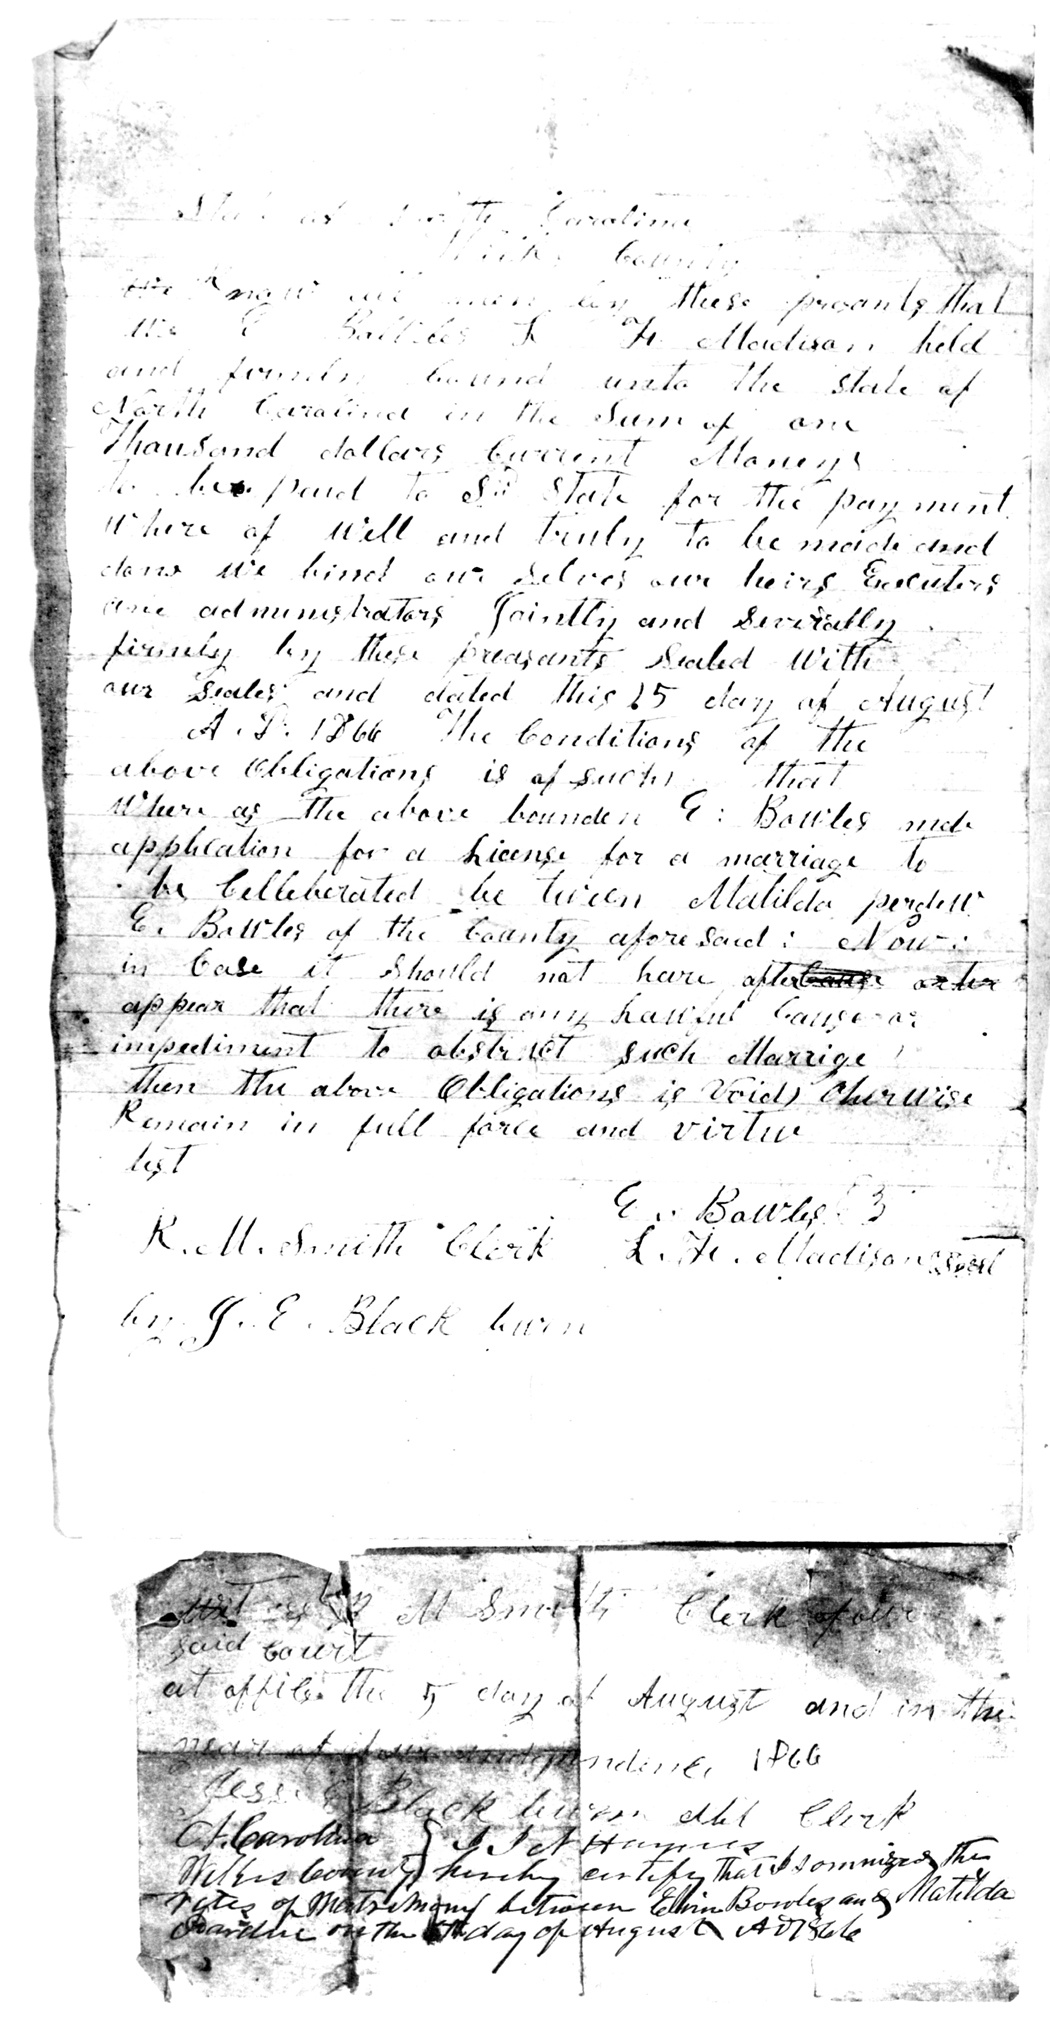 State of North Carolina
Wilks County
Know all men by these presants that
We E Bowles L H Madison held
and firmly bound unto the state of
North Carolina in the Sum of one
Thousand dollars Current Moneys
to be paid to Sd State for the payment
Where of Well and truly to be made and
done We bind our Selves our heirs Executers
and administrators Jointly and Severally
firmly by these preasants Sealed With
our Seales and dated this 25 day of August
A. D. 1866 The Conditions of the
above Obligations is of such that
Where as the above bounden E. Bowles made
application for a License for a marriage to
be Celleberated be tween Matilda perdew
E. Bowles of the County aforesaid: Now:
in Case it Should not here after
appear that there is any Lawful Cause or
impediment to obstruct such Marrige
then the above Obligations is Void, Otherwise
Remain in full force and virtue
test
E. Bowles
R. M. Smith Clerk L. H. Madison Seal
by J. E. Black burn
R M Smith Clerk of our
said court
at office the 5 day of August and in the
year of our independence 1866
Jesse E Black burn Clerk
N. Carolina } I
Wilkes County } hereby certify that I somnized the
rites of Matrimony between Elvin Bowles and Matilda
Pardue on the day of August AD 1866